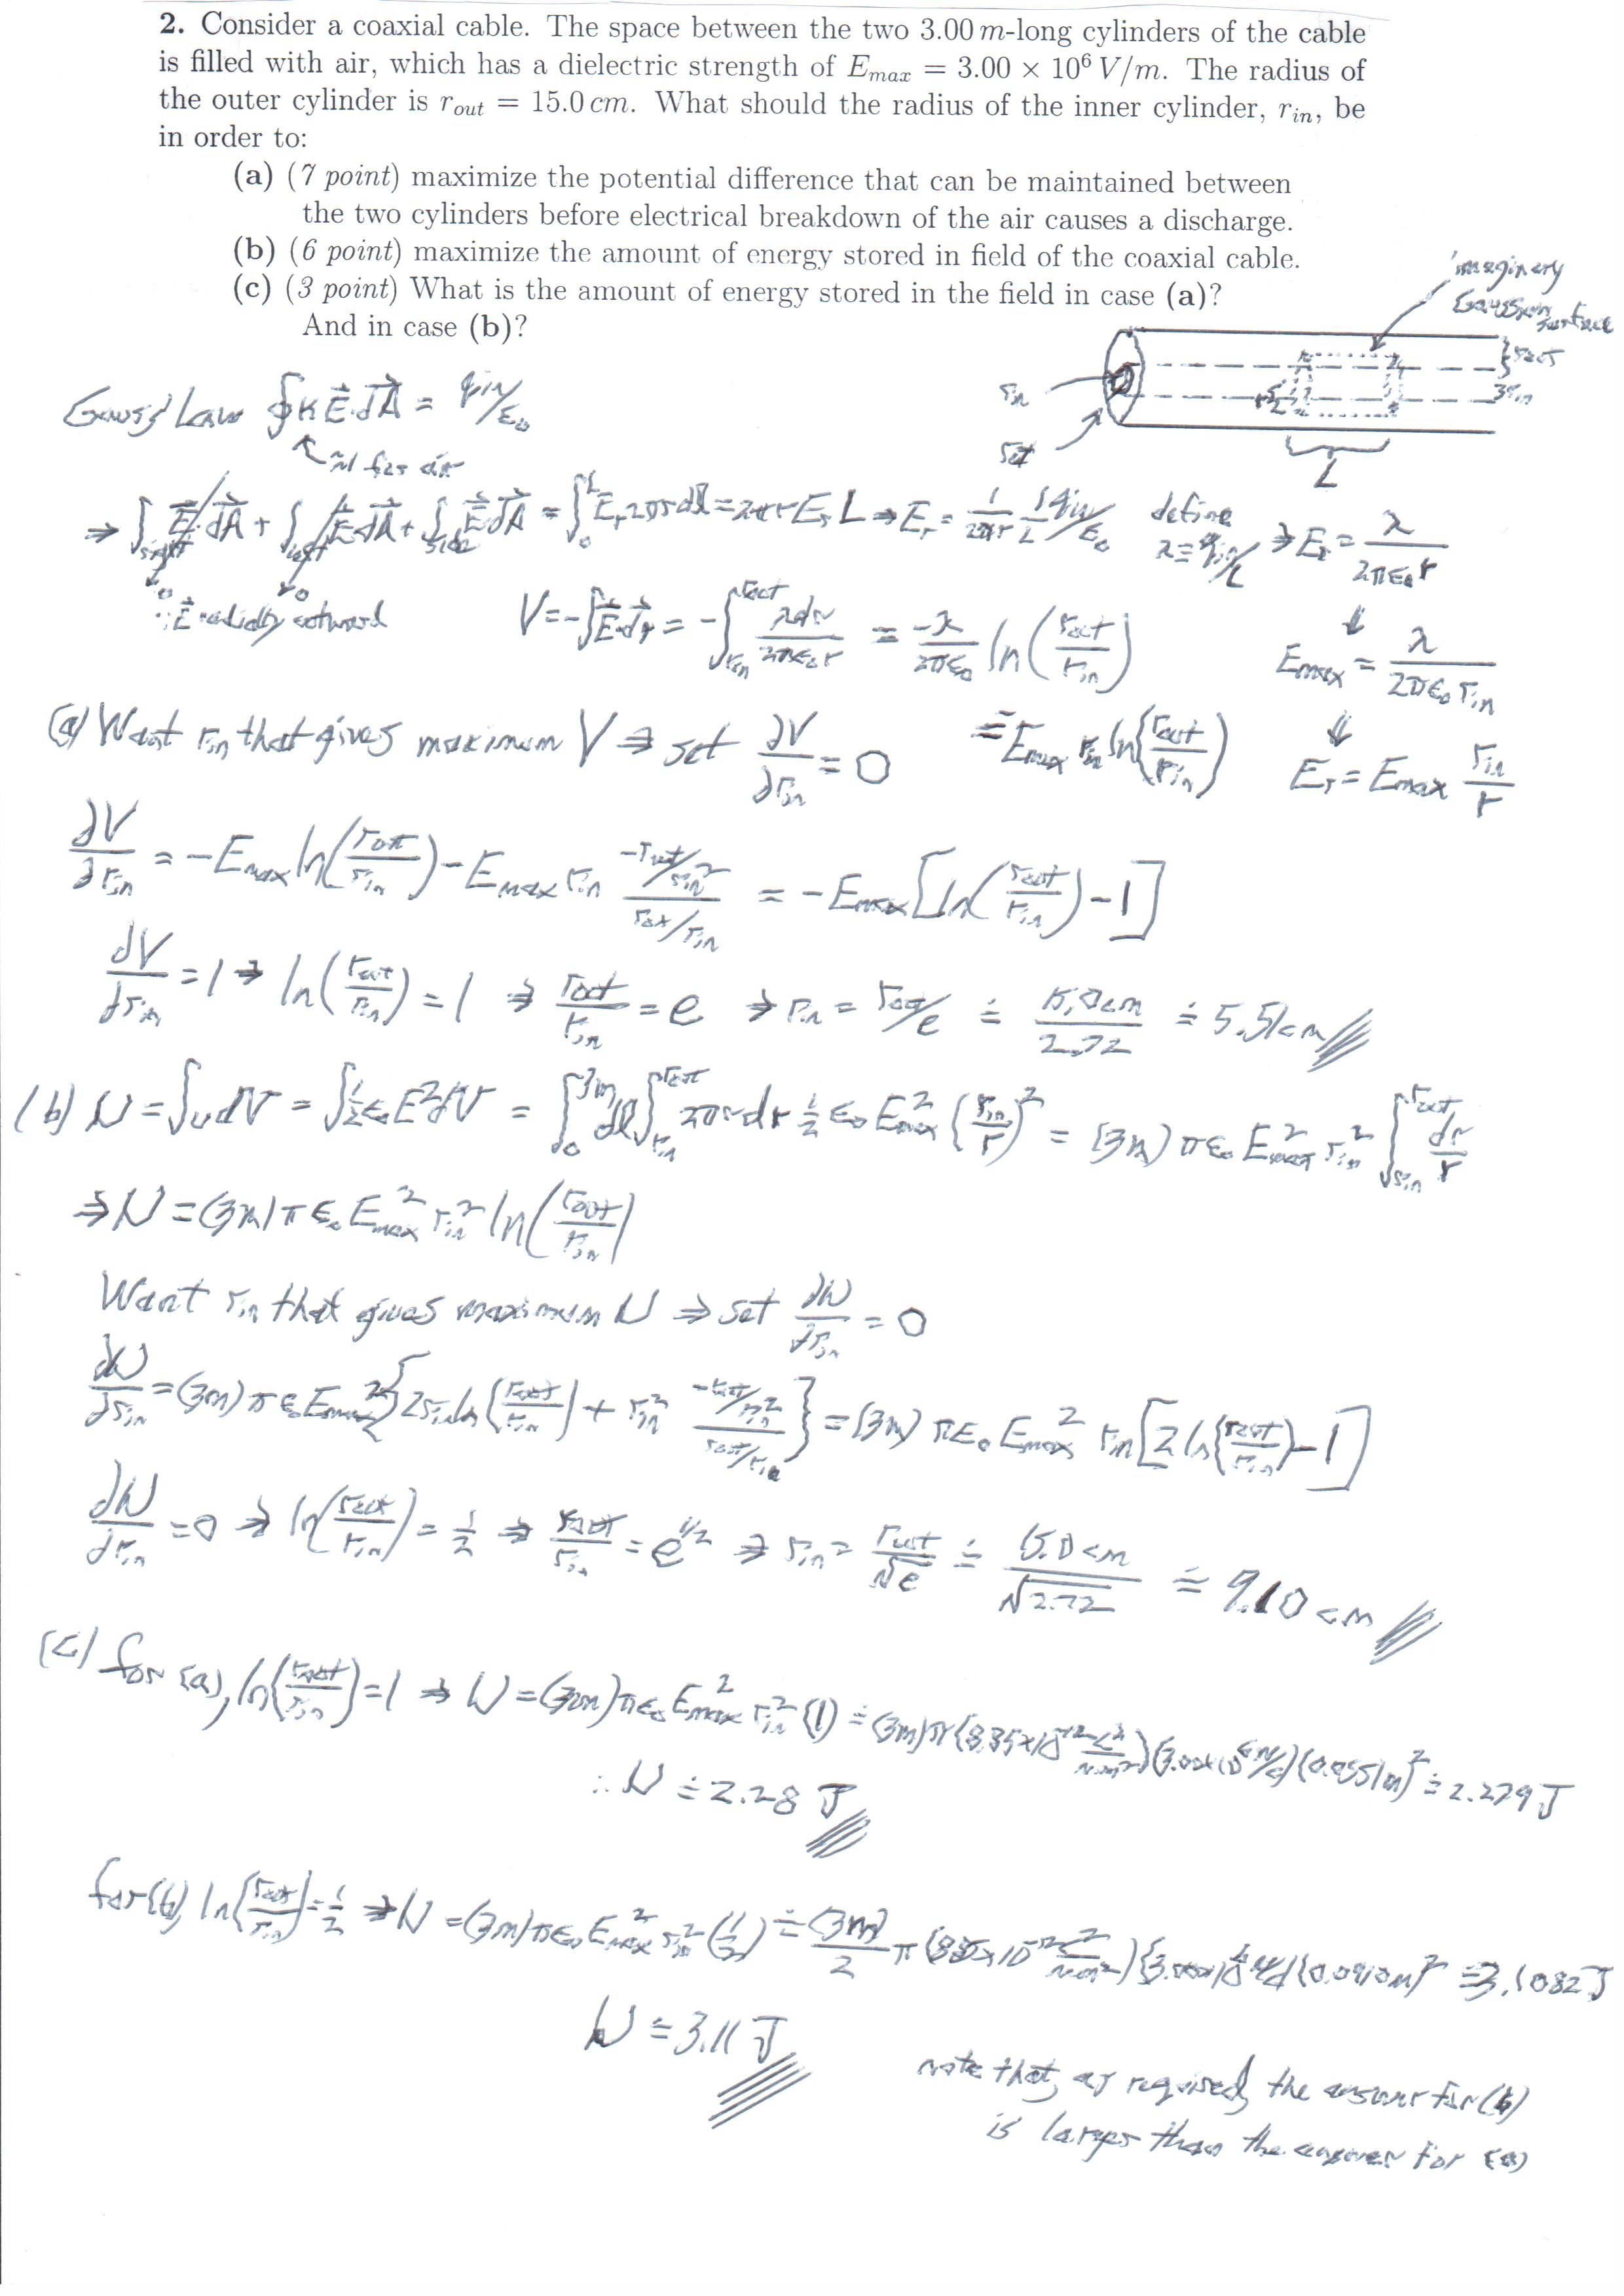 2. Consider a coaxial cable. The space between the two 3.00 m-long cylinders of the cable
is filled with air, which has a dielectric strength of E_max = 3.00 × 10⁶ V/m. The radius of
the outer cylinder is r_out = 15.0 cm. What should the radius of the inner cylinder, r_in, be
in order to:
(a) (7 point) maximize the potential difference that can be maintained between
the two cylinders before electrical breakdown of the air causes a discharge.
(b) (6 point) maximize the amount of energy stored in field of the coaxial cable.
(c) (3 point) What is the amount of energy stored in the field in case (a)?
And in case (b)?
imaginery
Gaussian surface
r_out
r_in
r_in
r_out
L
Gauss' Law ∮KE⃗·dA⃗ = q_in/ε₀
≈1 for air
⇒ ∫_right E⃗·dA⃗ + ∫_left E⃗·dA⃗ + ∫_side E⃗·dA⃗ = ∫₀^L E_r 2πr dl = 2πr E_r L ⇒ E_r = 1/(2πr) 1/L q_in/ε₀ define λ ≡ q_in/L ⇒ E_r = λ/(2πε₀r)
0 0
∵ E⃗ radially outward
V = -∫E⃗·dr⃗ = -∫_{r_in}^{r_out} λdr/(2πε₀r) = -λ/(2πε₀) ln(r_out/r_in)
⇓
E_max = λ/(2πε₀ r_in)
(a) Want r_in that gives maximum V ⇒ set ∂V/∂r_in = 0
= -E_max r_in ln(r_out/r_in)
⇓
E_r = E_max r_in/r
∂V/∂r_in = -E_max ln(r_out/r_in) - E_max r_in (-r_out/r_in²)/(r_out/r_in) = -E_max [ln(r_out/r_in) - 1]
dV/dr_in = 1 ⇒ ln(r_out/r_in) = 1 ⇒ r_out/r_in = e ⇒ r_in = r_out/e ≐ 15.0cm/2.72 ≐ 5.51cm
(b) W = ∫u dV = ∫½ε₀E²dV = ∫₀^{3m} dl ∫_{r_in}^{r_out} 2πr dr ½ ε₀ E_max² (r_in/r)² = (3m) πε₀ E_max² r_in² ∫_{r_in}^{r_out} dr/r
⇒ W = (3m) π ε₀ E_max² r_in² ln(r_out/r_in)
Want r_in that gives maximum W ⇒ set dW/dr_in = 0
dW/dr_in = (3m) π ε₀ E_max² {2r_in ln(r_out/r_in) + r_in² (-r_out/r_in²)/(r_out/r_in)} = (3m) πε₀ E_max² r_in [2 ln(r_out/r_in) - 1]
dW/dr_in = 0 ⇒ ln(r_out/r_in) = ½ ⇒ r_out/r_in = e^{1/2} ⇒ r_in = r_out/√e ≐ 15.0 cm/√2.72 ≐ 9.10 cm
(c) for (a), ln(r_out/r_in) = 1 ⇒ W = (3m) πε₀ E_max² r_in² (1) ≐ (3m)π(8.85×10⁻¹² C²/N·m²)(3.00×10⁶ N/C)(0.0551m)² ≐ 2.279 J
∴ W ≐ 2.28 J
for (b) ln(r_out/r_in) = ½ ⇒ W = (3m) πε₀ E_max² r_in² (½) ≐ (3m)/2 π (8.85×10⁻¹² C²/N·m²)(3.00×10⁶ N/C)(0.0910m)² ≐ 3.1082 J
W ≐ 3.11 J
note that, as required, the answer for (b)
is larger than the answer for (a)